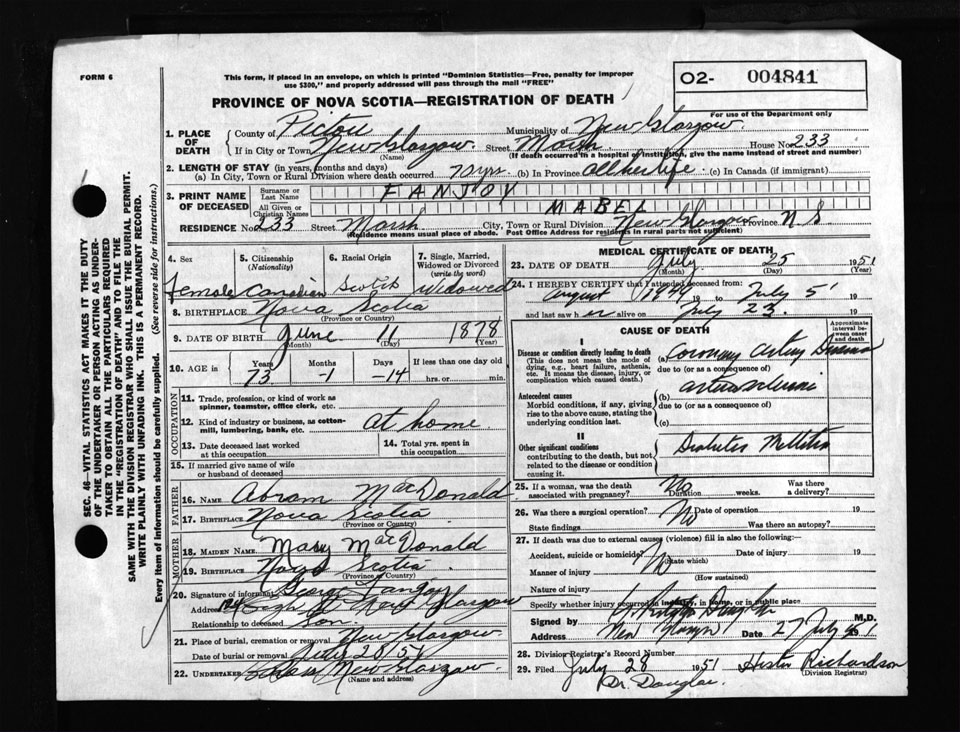 FORM 6
This form, if placed in an envelope, on which is printed "Dominion Statistics—Free, penalty for improper
use $300," and properly addressed will pass through the mail "FREE"
O2- 004841
For use of the Department only
PROVINCE OF NOVA SCOTIA—REGISTRATION OF DEATH
1. PLACE OF DEATH
County of Pictou Municipality of New Glasgow.
If in City or Town New Glasgow. Street Marsh House No. 233
(Name) (If death occurred in a hospital or institution, give the name instead of street and number)
2. LENGTH OF STAY (in years, months and days)
(a) In City, Town or Rural Division where death occurred 70 yrs. (b) In Province all her life. (c) In Canada (if immigrant)
3. PRINT NAME OF DECEASED
Surname or Last Name FANJOY
All Given or Christian Names MABEL
RESIDENCE No. 233 Street Marsh City, Town or Rural Division New Glasgow Province N S
(Residence means usual place of abode. Post Office Address for residents in rural parts not sufficient)
4. Sex 5. Citizenship (Nationality) 6. Racial Origin 7. Single, Married, Widowed or Divorced (write the word)
Female Canadian Scotch Widowed
8. BIRTHPLACE Nova Scotia
(Province or Country)
9. DATE OF BIRTH June 11 1878
(Month) (Day) (Year)
10. AGE in Years Months Days If less than one day old
73 -1 -14 hrs. or min.
OCCUPATION
11. Trade, profession, or kind of work as
spinner, teamster, office clerk, etc.
12. Kind of industry or business, as cotton-
mill, lumbering, bank, etc. At home
13. Date deceased last worked at this occupation
14. Total yrs. spent in this occupation
15. If married give name of wife
or husband of deceased
FATHER
16. Name Abram MacDonald
17. BIRTHPLACE Nova Scotia
(Province or Country)
MOTHER
18. MAIDEN NAME Mary MacDonald
19. BIRTHPLACE Nova Scotia
(Province or Country)
20. Signature of informant George Fanjoy
Address New Glasgow
Relationship to deceased Son.
21. Place of burial, cremation or removal New Glasgow
Date of burial or removal July 28/51
22. UNDERTAKER New Glasgow.
(Name and address)
MEDICAL CERTIFICATE OF DEATH
23. DATE OF DEATH July 25 1951
(Month) (Day) (Year)
24. I HEREBY CERTIFY that I attended deceased from:
August 1944 19 to July 51 19
and last saw her alive on July 23. 19
CAUSE OF DEATH
Approximate interval between onset and death
I
Disease or condition directly leading to death
(This does not mean the mode of dying, e.g., heart failure, asthenia, etc. It means the disease, injury, or complication which caused death.)
(a) Coronary Artery Disease
due to (or as a consequence of)
Antecedent causes
Morbid conditions, if any, giving rise to the above cause, stating the underlying condition last.
(b)
due to (or as a consequence of)
(c)
II
Other significant conditions
contributing to the death, but not related to the disease or condition causing it.
Diabetes Mellitus
25. If a woman, was the death No Was there
associated with pregnancy? Duration weeks. a delivery?
26. Was there a surgical operation? No Date of operation 19
State findings Was there an autopsy?
27. If death was due to external causes (violence) fill in also the following:—
Accident, suicide or homicide? No Date of injury 19
(State which)
Manner of injury
(How sustained)
Nature of injury
Specify whether injury occurred in industry, in home, or in public place
Signed by M.D.
Address New Glasgow Date 27 July 1951
28. Division Registrar's Record Number
29. Filed July 28 1951 Hester Richardson
(Division Registrar)
Dr. Douglas.
SEC. 46—VITAL STATISTICS ACT MAKES IT THE DUTY
OF THE UNDERTAKER OR PERSON ACTING AS UNDER-
TAKER TO OBTAIN ALL THE PARTICULARS REQUIRED
IN THE "REGISTRATION OF DEATH" AND TO FILE THE
SAME WITH THE DIVISION REGISTRAR WHO SHALL ISSUE THE BURIAL PERMIT.
WRITE PLAINLY WITH UNFADING INK. THIS IS A PERMANENT RECORD.
Every item of information should be carefully supplied. (See reverse side for instructions.)